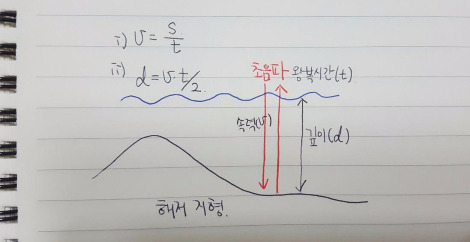 i) v = s/t
ii) d = vt/2.
초음파 왕복시간(t)
속력(v)
깊이(d)
해저 지형.